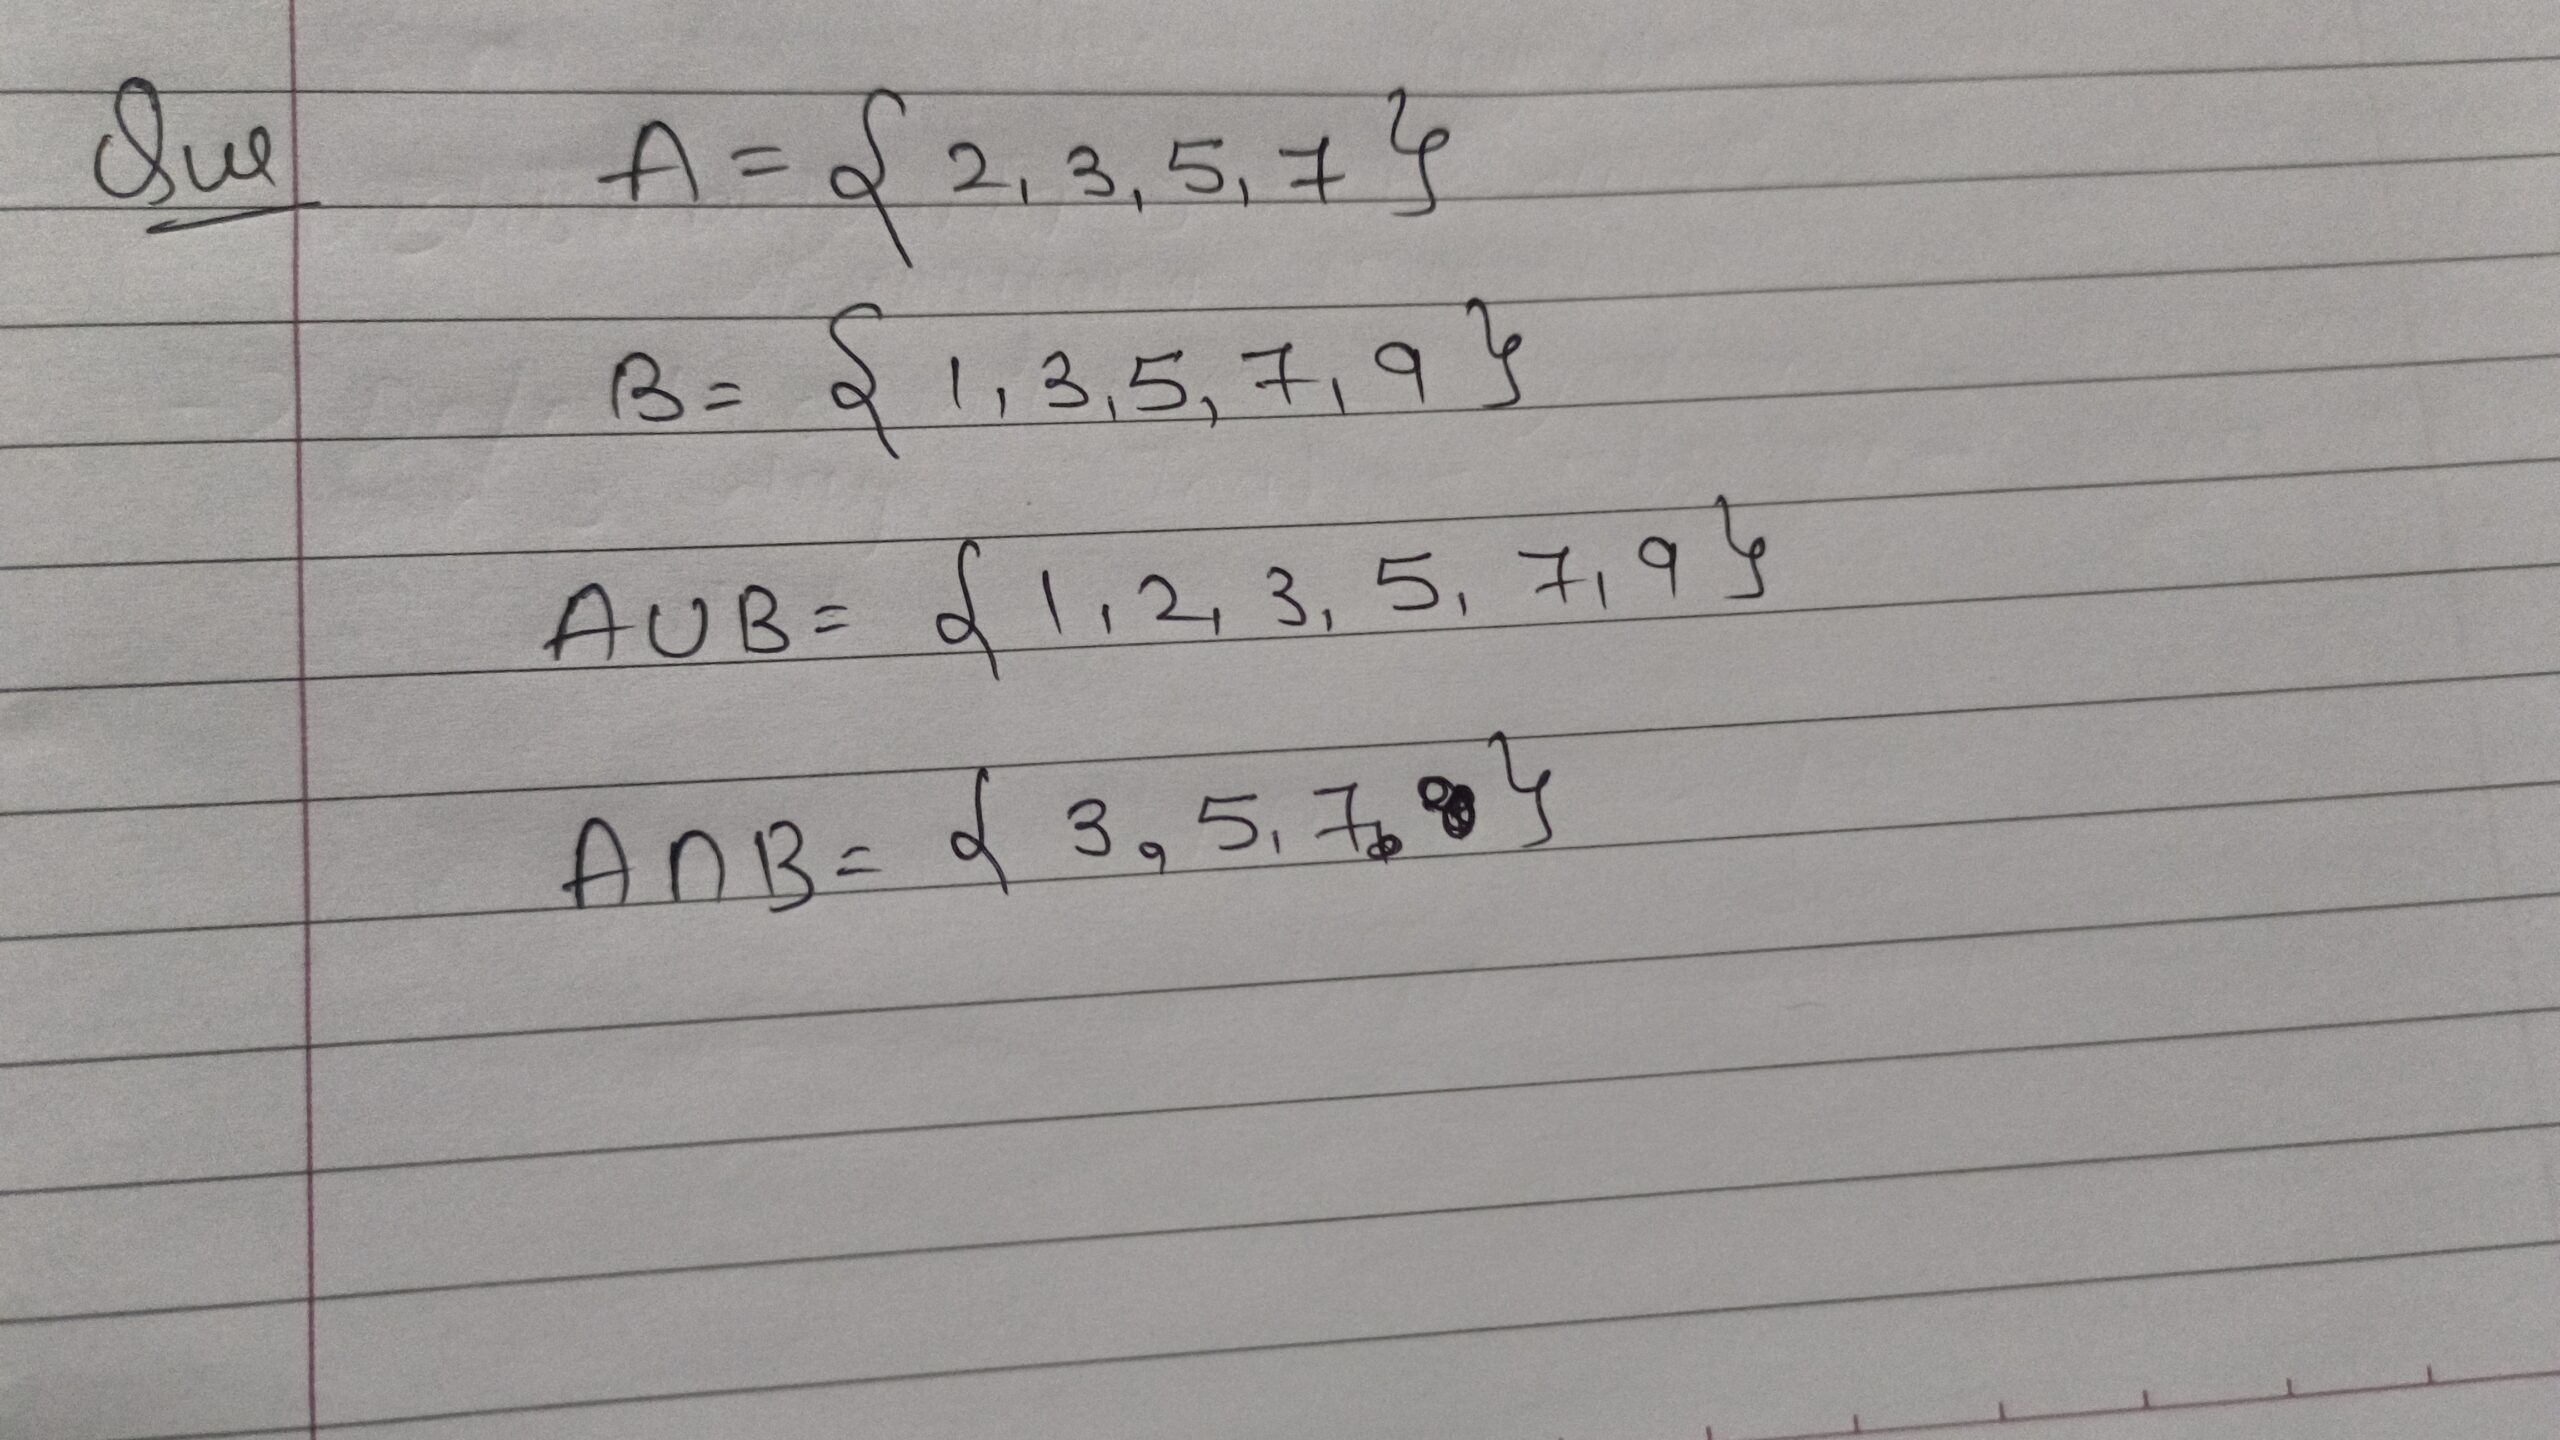 Que A = { 2, 3, 5, 7 }
B = { 1, 3, 5, 7, 9 }
A ∪ B = { 1, 2, 3, 5, 7, 9 }
A ∩ B = { 3, 5, 7 }